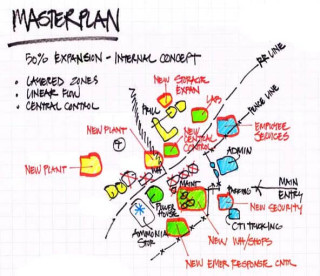 MASTERPLAN
50% EXPANSION - INTERNAL CONCEPT
• LAYERED ZONES
• LINEAR FLOW
• CENTRAL CONTROL
RR LINE
FENCE LINE
NEW STORAGE
EXPAN
PRILL
LAB
NEW PLANT
NEW
CENTRAL
CONTROL
EMPLOYEE
SERVICES
NEW PLANT
ADMIN
WH
MAINT
PARKING
MAIN
ENTRY
POWER
HOUSE
NEW SECURITY
AMMONIA
STOR
CTI TRUCKING
NEW WH/SHOPS
NEW EMER RESPONSE CNTR